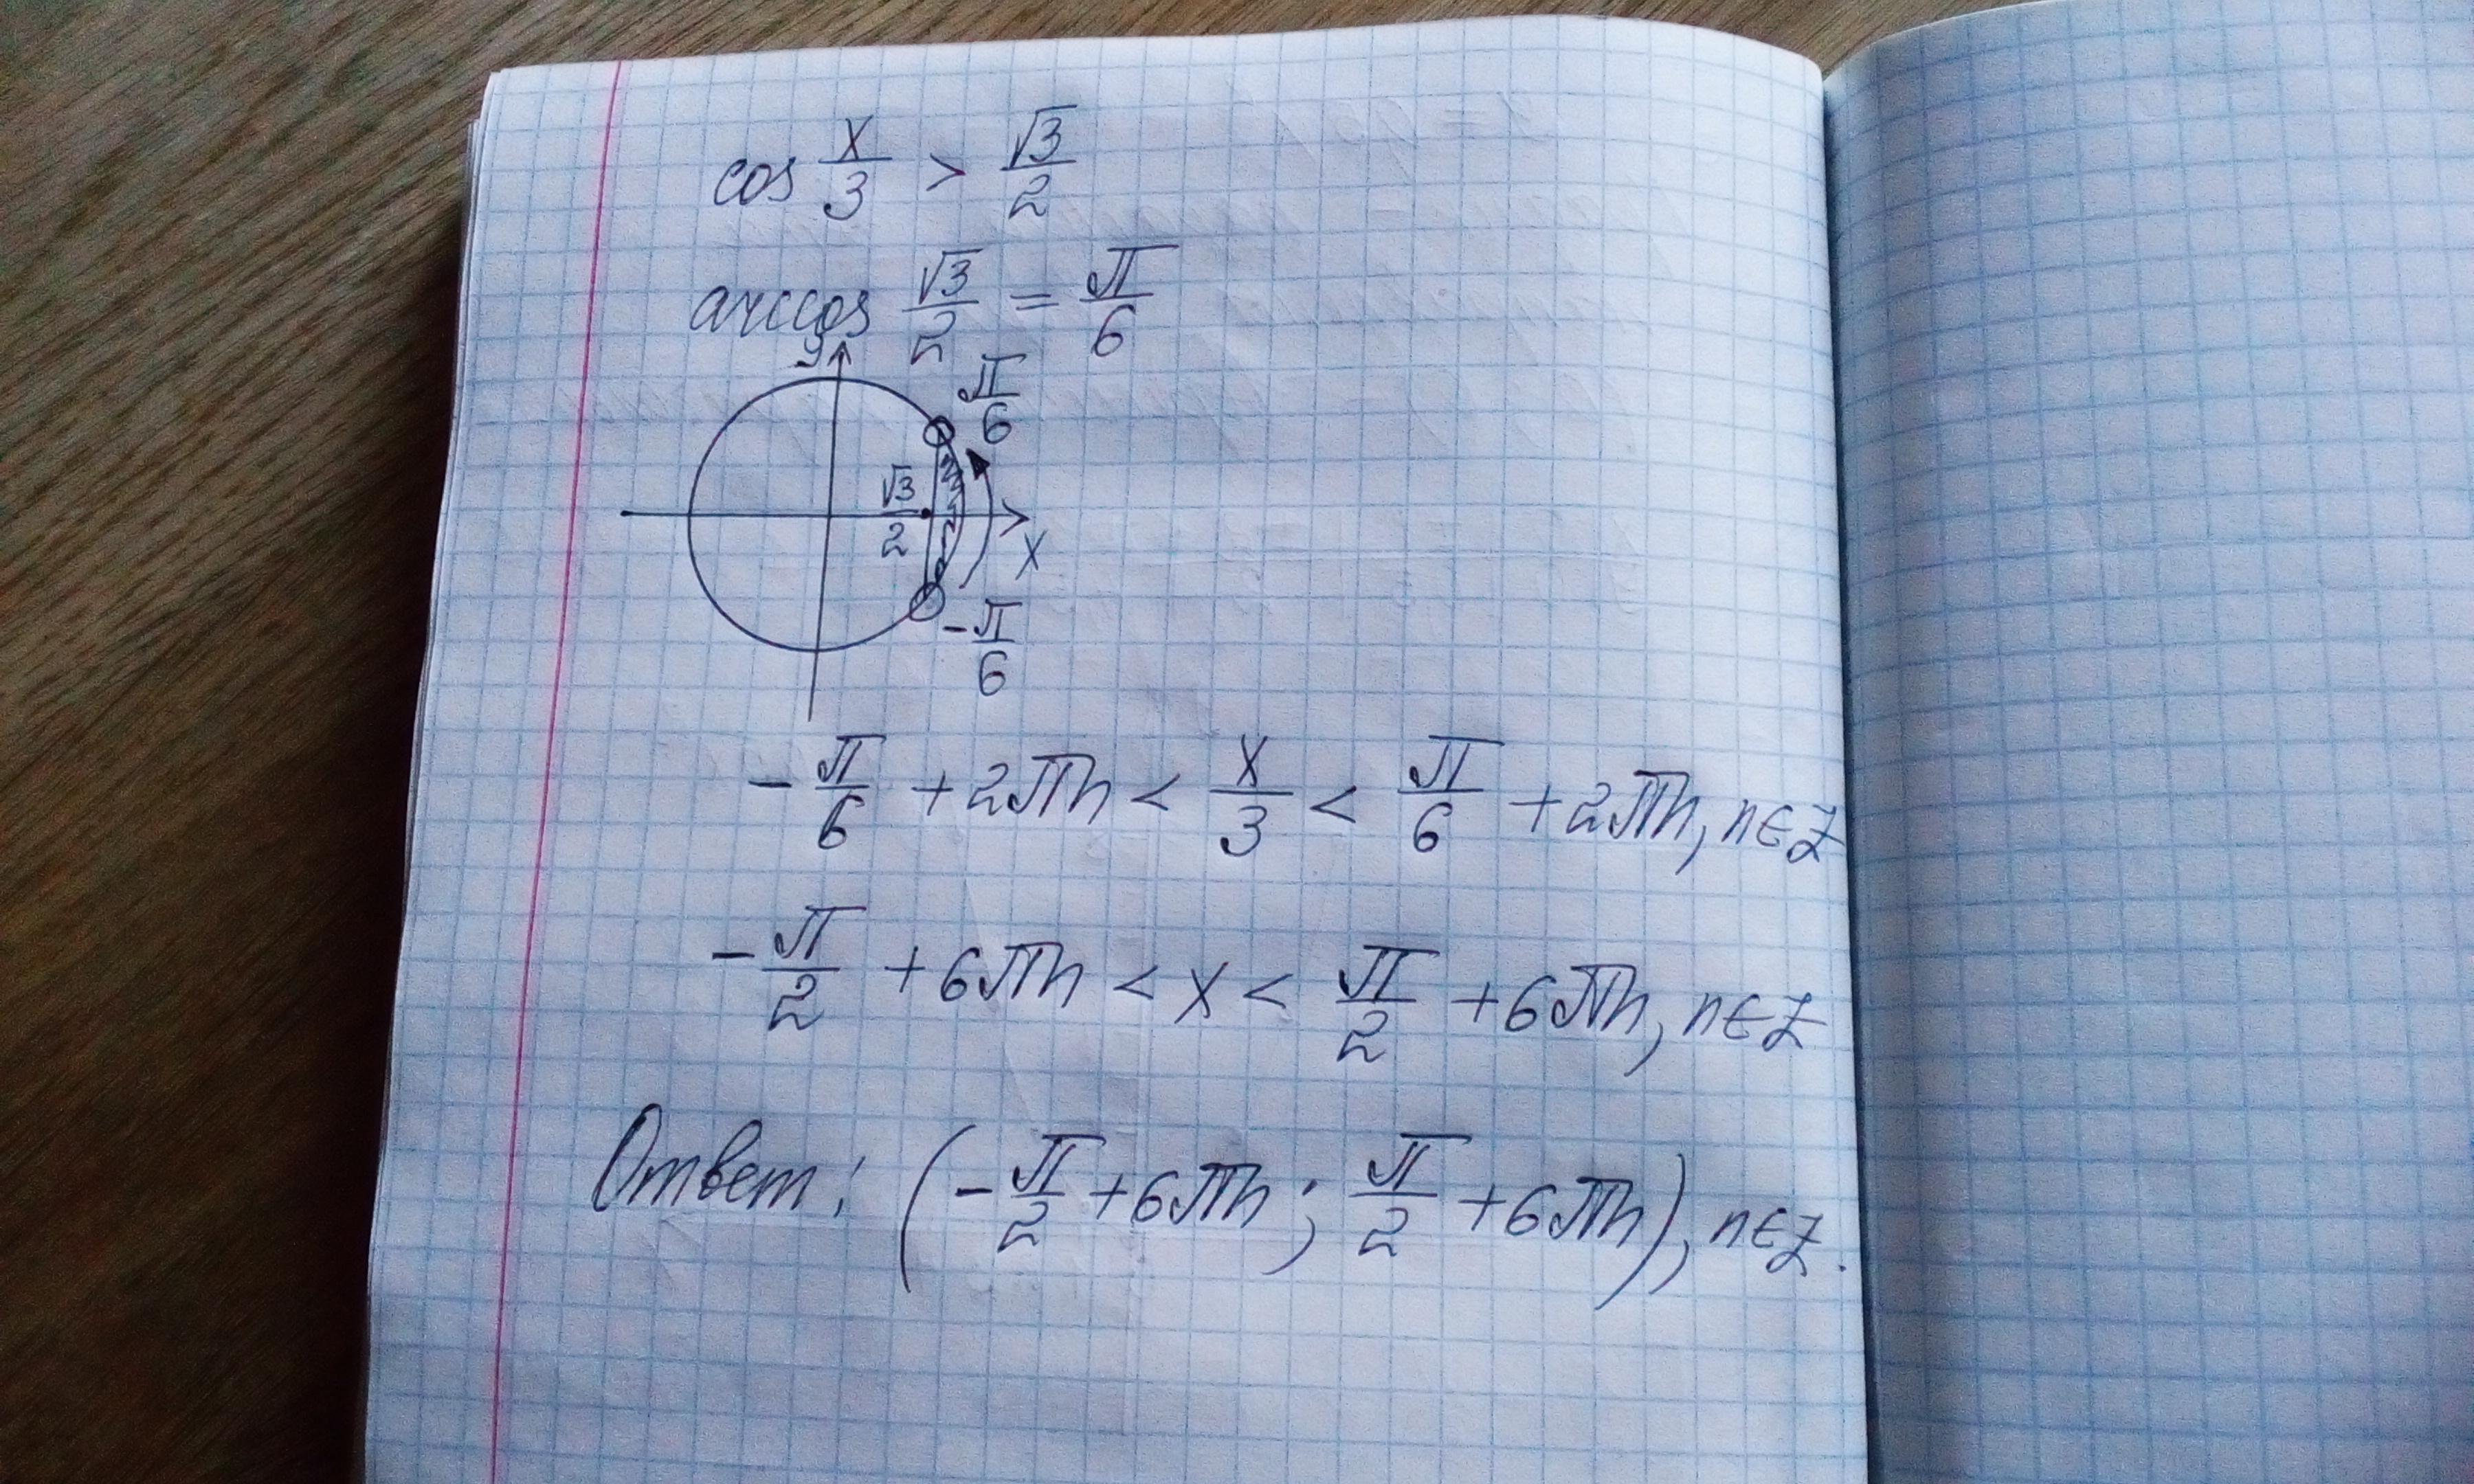 cos x/3 > √3/2
arccos √3/2 = π/6
y
π/6
√3/2
x
-π/6
-π/6 + 2πn < x/3 < π/6 + 2πn, n∈Z
-π/2 + 6πn < x < π/2 + 6πn, n∈Z
Ответ: (-π/2 + 6πn; π/2 + 6πn), n∈Z.